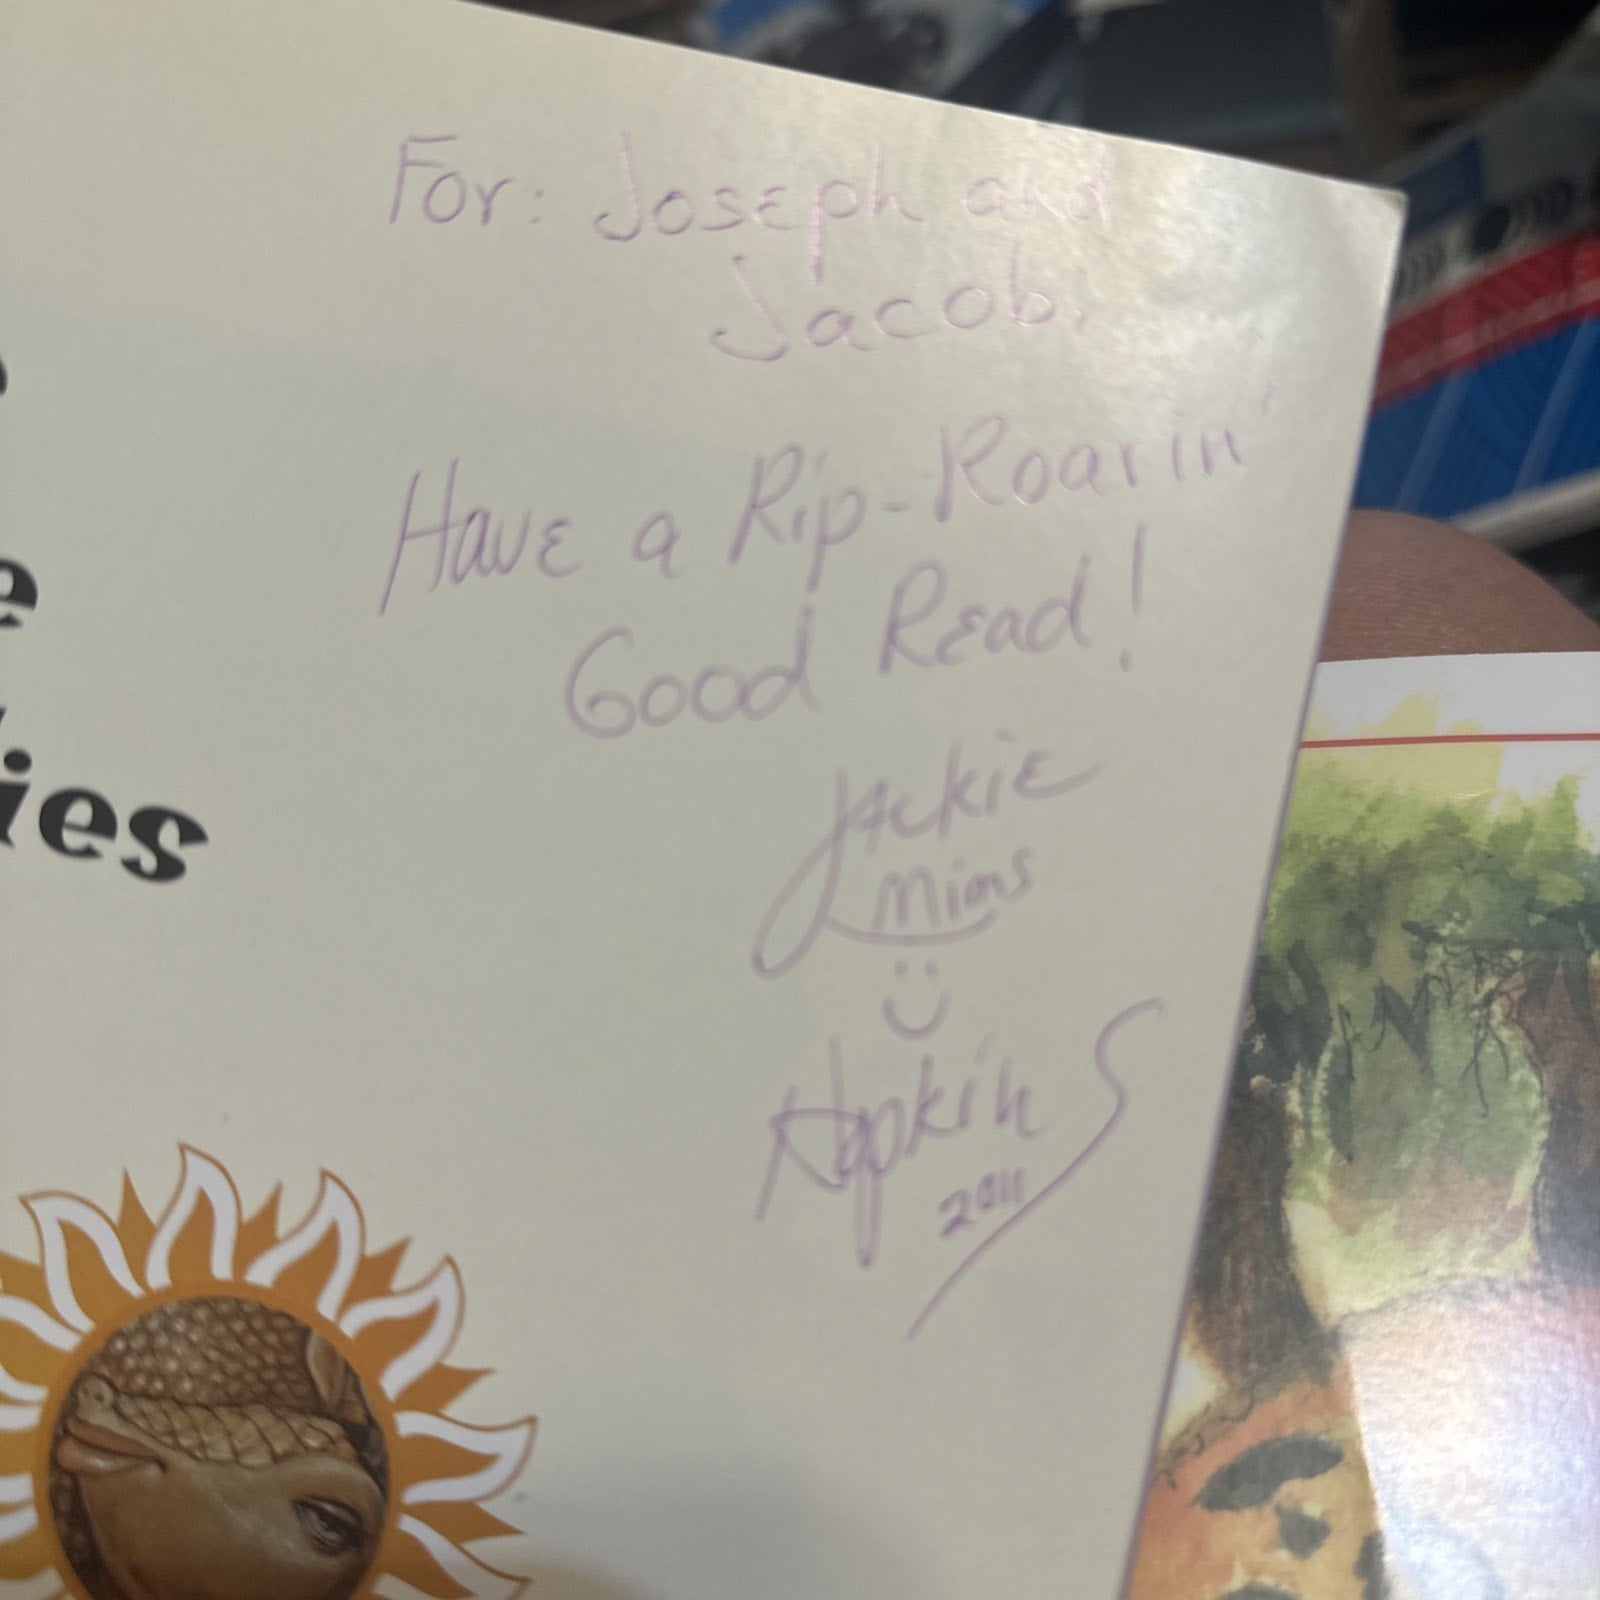 For: Joseph and
Jacob.
Have a Rip-Roarin'
Good Read!
Jackie
Mims
Hopkins
2011
e
ies